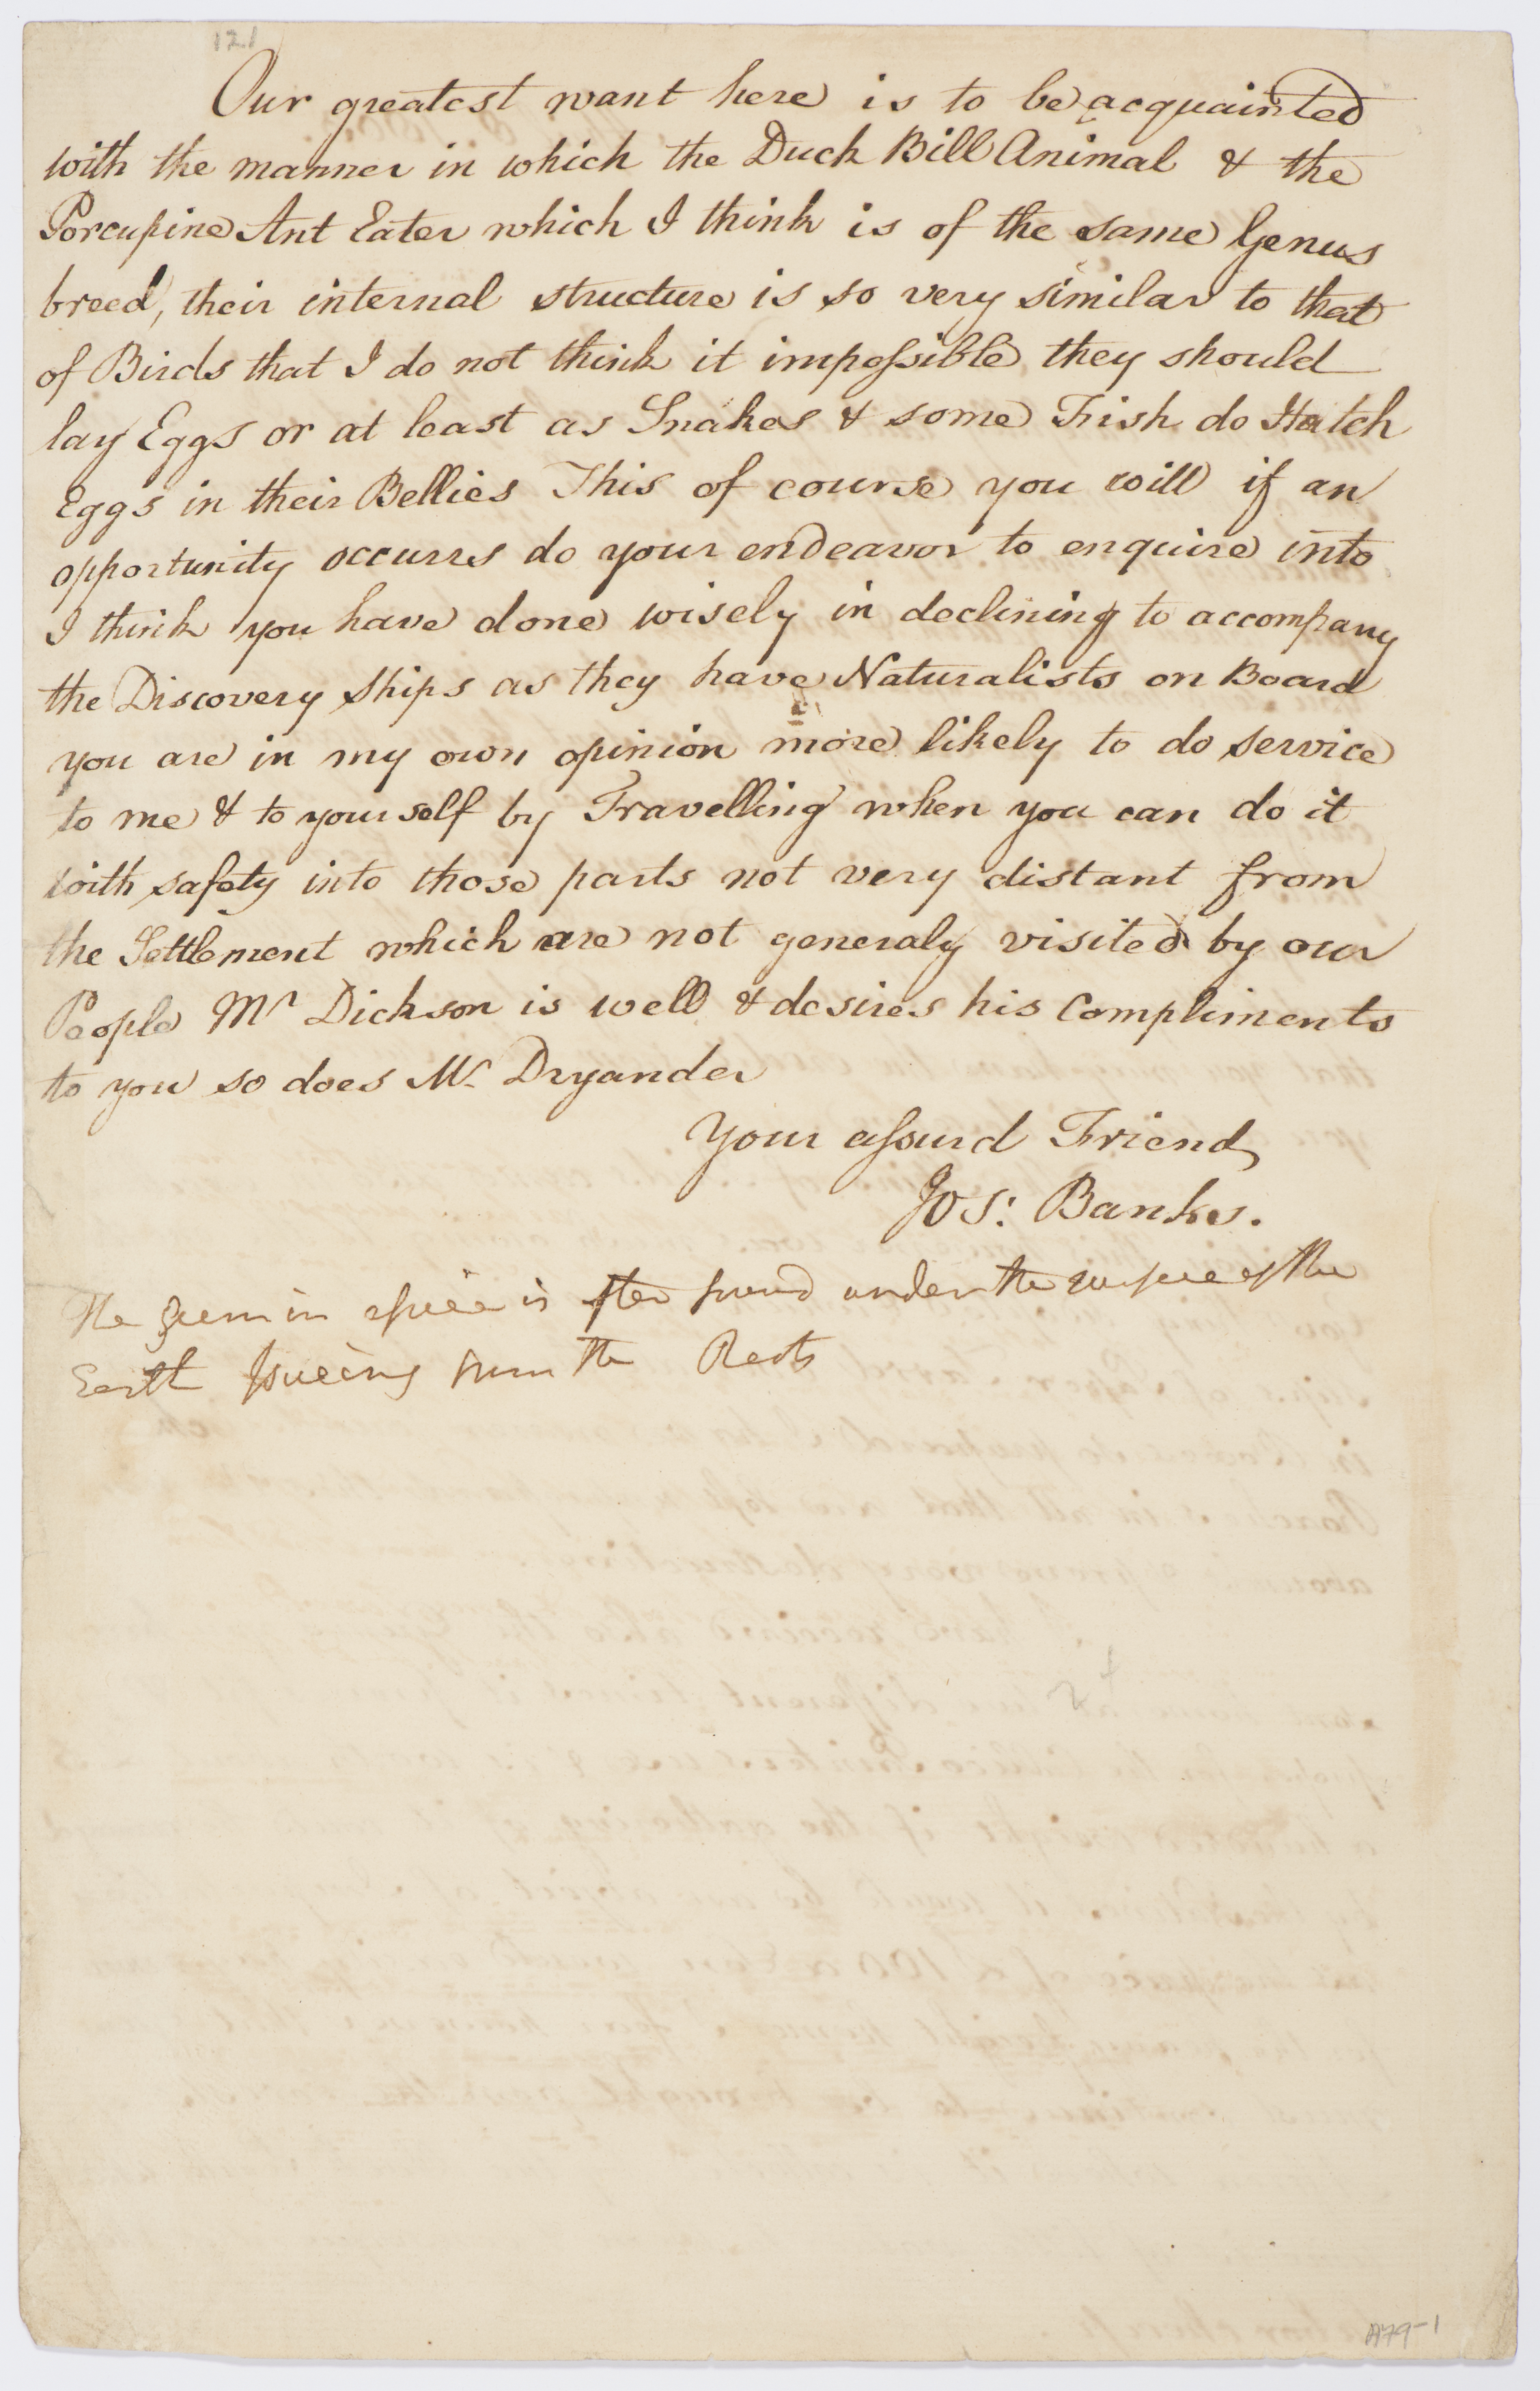 121
Our greatest want here is to be acquainted
with the manner in which the Duck Bill Animal & the
Porcupine Ant Eater which I think is of the same Genus
breed, their internal structure is so very similar to that
of Birds that I do not think it impossible they should
lay Eggs or at least as Snakes & some Fish do Hatch
Eggs in their Bellies This of course you will if an
opportunity occurrs do your endeavor to enquire into
I think you have done wisely in declining to accompany
the Discovery Ships as they have Naturalists on Board
you are in my own opinion more likely to do service
to me & to yourself by Travelling when you can do it
with safety into those parts not very distant from
the Settlement which are not generaly visited by our
People Mr Dickson is well & desires his Compliments
to you so does Mr Dryander
Your assurd Friend
Jos: Banks.
The Gum in is found under the of the
Earth from the Roots
A79-1